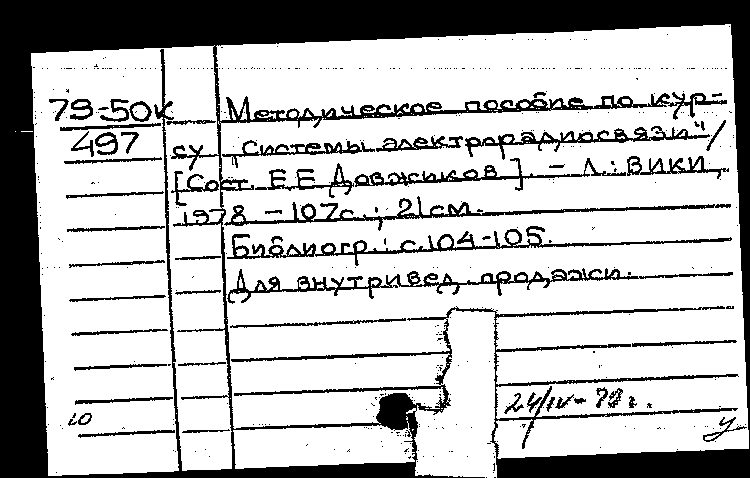 79-50к Методическое пособие по кур-
497 су „Системы электрорадиосвязи"/
[Сост. Е Е Довжиков]. - Л.: ВИКИ,
1978 - 107с.; 21см.
Библиогр.: с.104-105.
Для внутривед. продажи.
24/IV-79г.